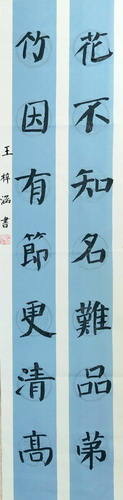 花不知名難品第
竹因有節更清高
王梓涵書